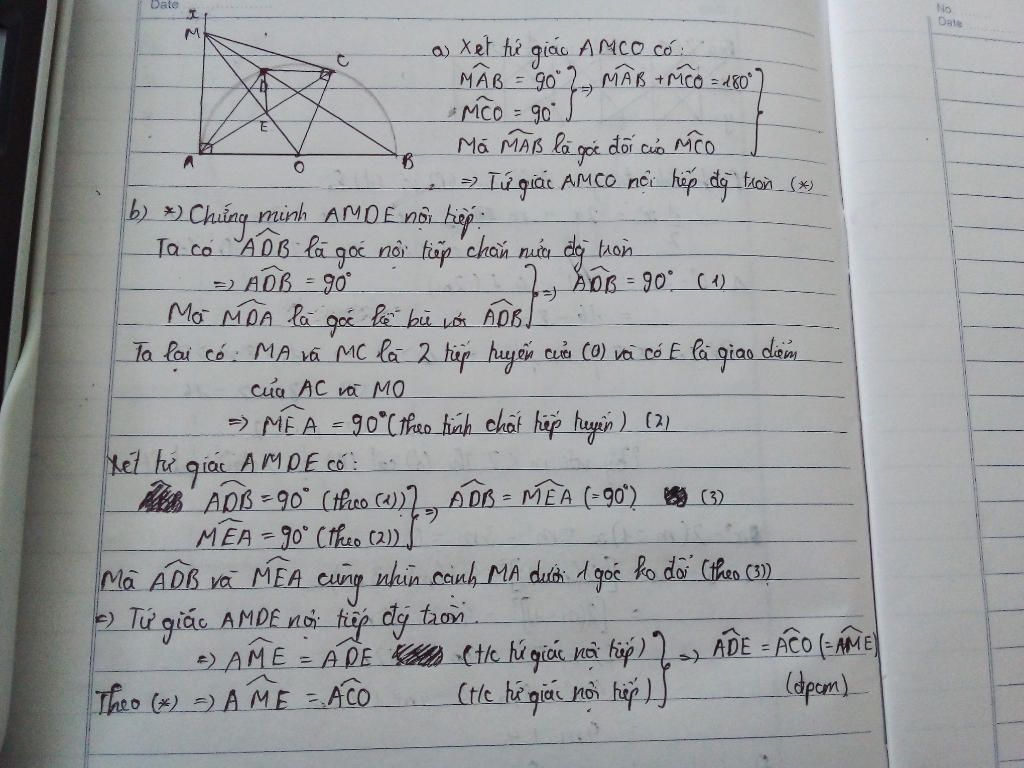 Date
No.
Date
x
M
C
D
E
A
O
B
a) Xét tứ giác AMCO có:
MÂB = 90°
MĈO = 90°
=> MÂB + MĈO = 180°
Mà MÂB là góc đối của MĈO
=> Tứ giác AMCO nội tiếp đg tròn (*)
b) *) Chứng minh AMDE nội tiếp:
Ta có AD̂B là góc nội tiếp chắn nửa đg tròn
=> AD̂B = 90°
=> AD̂B = 90° (1)
Mà MD̂A là góc kề bù với AD̂B
Ta lại có: MA và MC là 2 tiếp tuyến của (O) và có E là giao điểm
của AC và MO
=> MÊA = 90° (theo tính chất tiếp tuyến) (2)
Xét tứ giác AMDE có:
AD̂B = 90° (theo (1))
=> AD̂B = MÊA (=90°) (3)
MÊA = 90° (theo (2))
Mà AD̂B và MÊA cùng nhìn cạnh MA dưới 1 góc ko đổi (theo (3))
=> Tứ giác AMDE nội tiếp đg tròn.
=> AM̂E = AD̂E (t/c tứ giác nội tiếp)
=> AD̂E = AĈO (=AM̂E)
Theo (*) => AM̂E = AĈO (t/c tứ giác nội tiếp)
(đpcm)